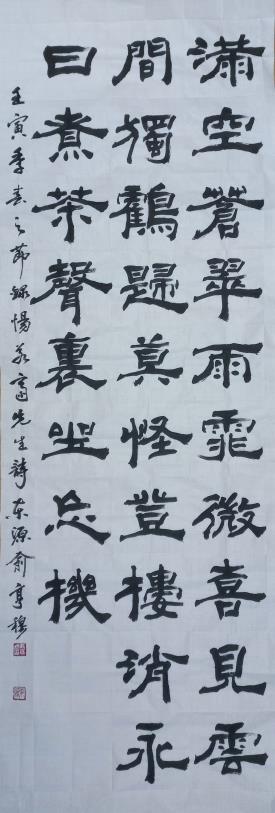 满空蒼翠雨霏微喜見雲
間獨鶴歸莫怪登樓消永
日煮茶聲裏坐忘機
壬寅季春之節錄惕若齋先生詩東源俞亨穆